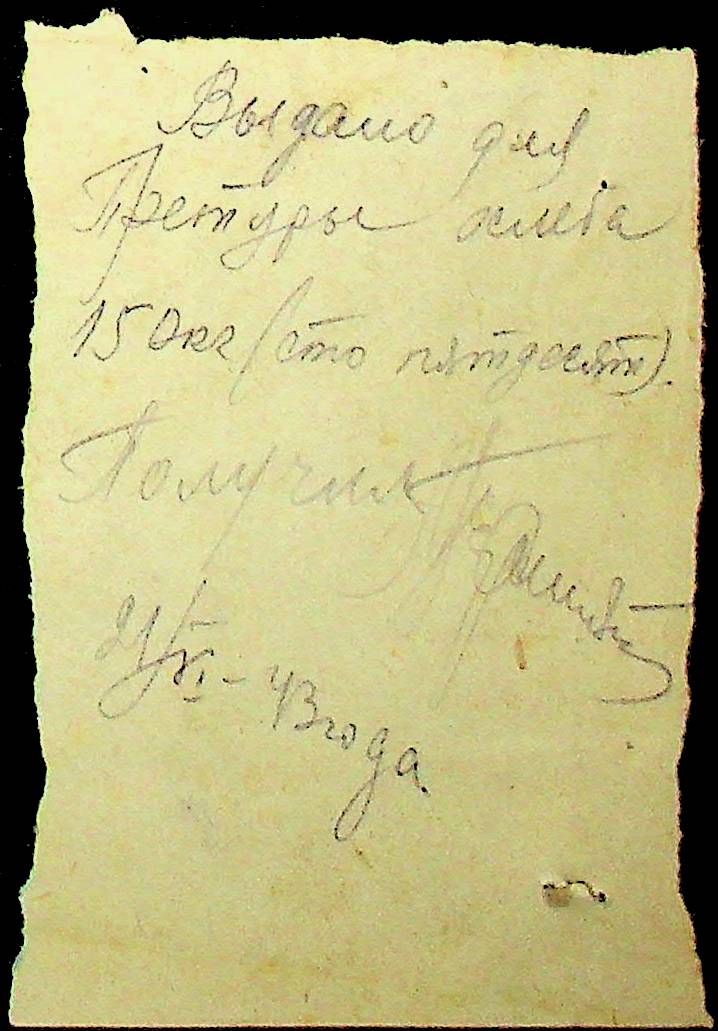 Выдано для
Претуры хлеба
150 кг (сто пятдесят).
Получил
21/XI - 43 года.